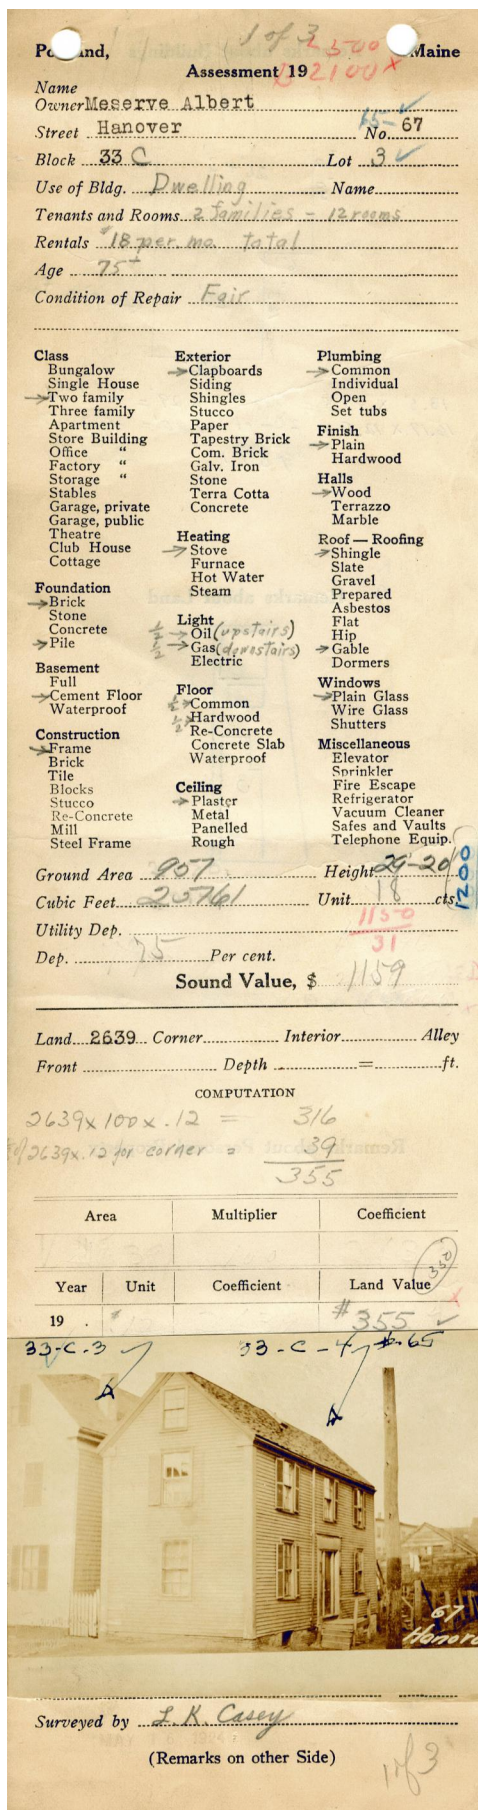 1 of 3
2500
Portland, Maine
Assessment 19 2100 x
Name
Owner Meserve Albert
65- ✓
Street Hanover No. 67
Block 33 C Lot 3 ✓
Use of Bldg. Dwelling Name
Tenants and Rooms 2 families - 12 rooms
Rentals $18 per mo. total
Age 75±
Condition of Repair Fair
Class
Bungalow
Single House
→ Two family
Three family
Apartment
Store Building
Office "
Factory "
Storage "
Stables
Garage, private
Garage, public
Theatre
Club House
Cottage
Foundation
→ Brick
Stone
Concrete
→ Pile
Basement
Full
→ Cement Floor
Waterproof
Construction
→ Frame
Brick
Tile
Blocks
Stucco
Re-Concrete
Mill
Steel Frame
Exterior
→ Clapboards
Siding
Shingles
Stucco
Paper
Tapestry Brick
Com. Brick
Galv. Iron
Stone
Terra Cotta
Concrete
Heating
→ Stove
Furnace
Hot Water
Steam
Light
½ → Oil (upstairs)
½ → Gas (downstairs)
Electric
Floor
½ → Common
½ → Hardwood
Re-Concrete
Concrete Slab
Waterproof
Ceiling
→ Plaster
Metal
Panelled
Rough
Plumbing
→ Common
Individual
Open
Set tubs
Finish
→ Plain
Hardwood
Halls
→ Wood
Terrazzo
Marble
Roof — Roofing
→ Shingle
Slate
Gravel
Prepared
Asbestos
Flat
Hip
→ Gable
Dormers
Windows
→ Plain Glass
Wire Glass
Shutters
Miscellaneous
Elevator
Sprinkler
Fire Escape
Refrigerator
Vacuum Cleaner
Safes and Vaults
Telephone Equip.
Ground Area 957 Height 29-20
Cubic Feet 25761 Unit 18 cts.
1200
Utility Dep. 1150
31
Dep. 75 Per cent.
Sound Value, $ 1159
Land 2639 Corner Interior Alley
Front Depth = ft.
COMPUTATION
2639 x 100 x .12 = 316
2639 x .12 for corner = 39
355
Area Multiplier Coefficient
350
Year Unit Coefficient Land Value
x
19 . # #355 ✓
33-C-3 ✓ 33-C-4 #65
67
Hanover
Surveyed by L. K. Casey
(Remarks on other Side)
1 of 3